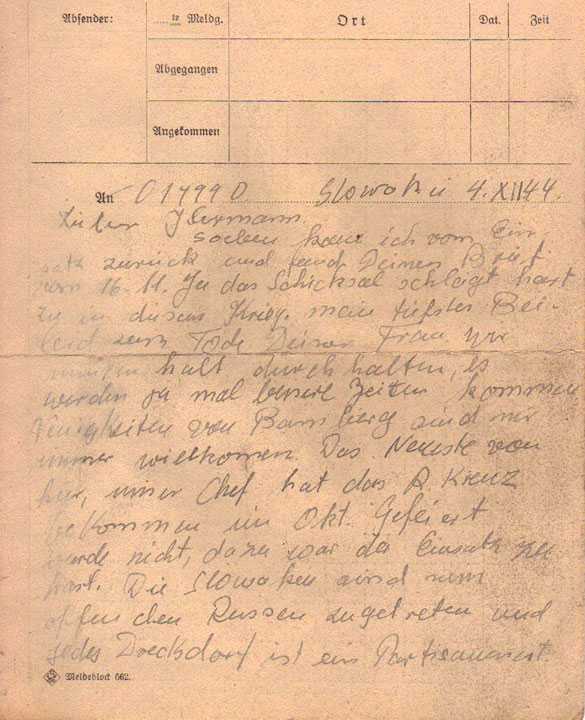 Absender:
te Meldg.
Ort
Dat.
Zeit
Abgegangen
Angekommen
An 01499 D Slowakei 4.XII 44.
Lieber Hermann.
Soeben kam ich vom Ein-
satz zurück und fand Deinen Brief
vom 16.11. Ja das Schicksal schlägt hart
zu in diesem Krieg. mein tiefster Bei-
leid zum Tode Deiner Frau. Wir
müssen halt durchhalten, es
werden ja mal bessere Zeiten kommen
Neuigkeiten von Bamberg sind mir
immer willkommen. Das Neueste von
hier, unser Chef hat das R. Kreuz
bekommen im Okt. Gefeiert
wurde nicht, dazu war der Einsatz zu
hart. Die Slowaken sind zum
offen den Russen zugetreten und
jedes Dreckdorf ist ein Partisanennest.
Meldeblock 662.